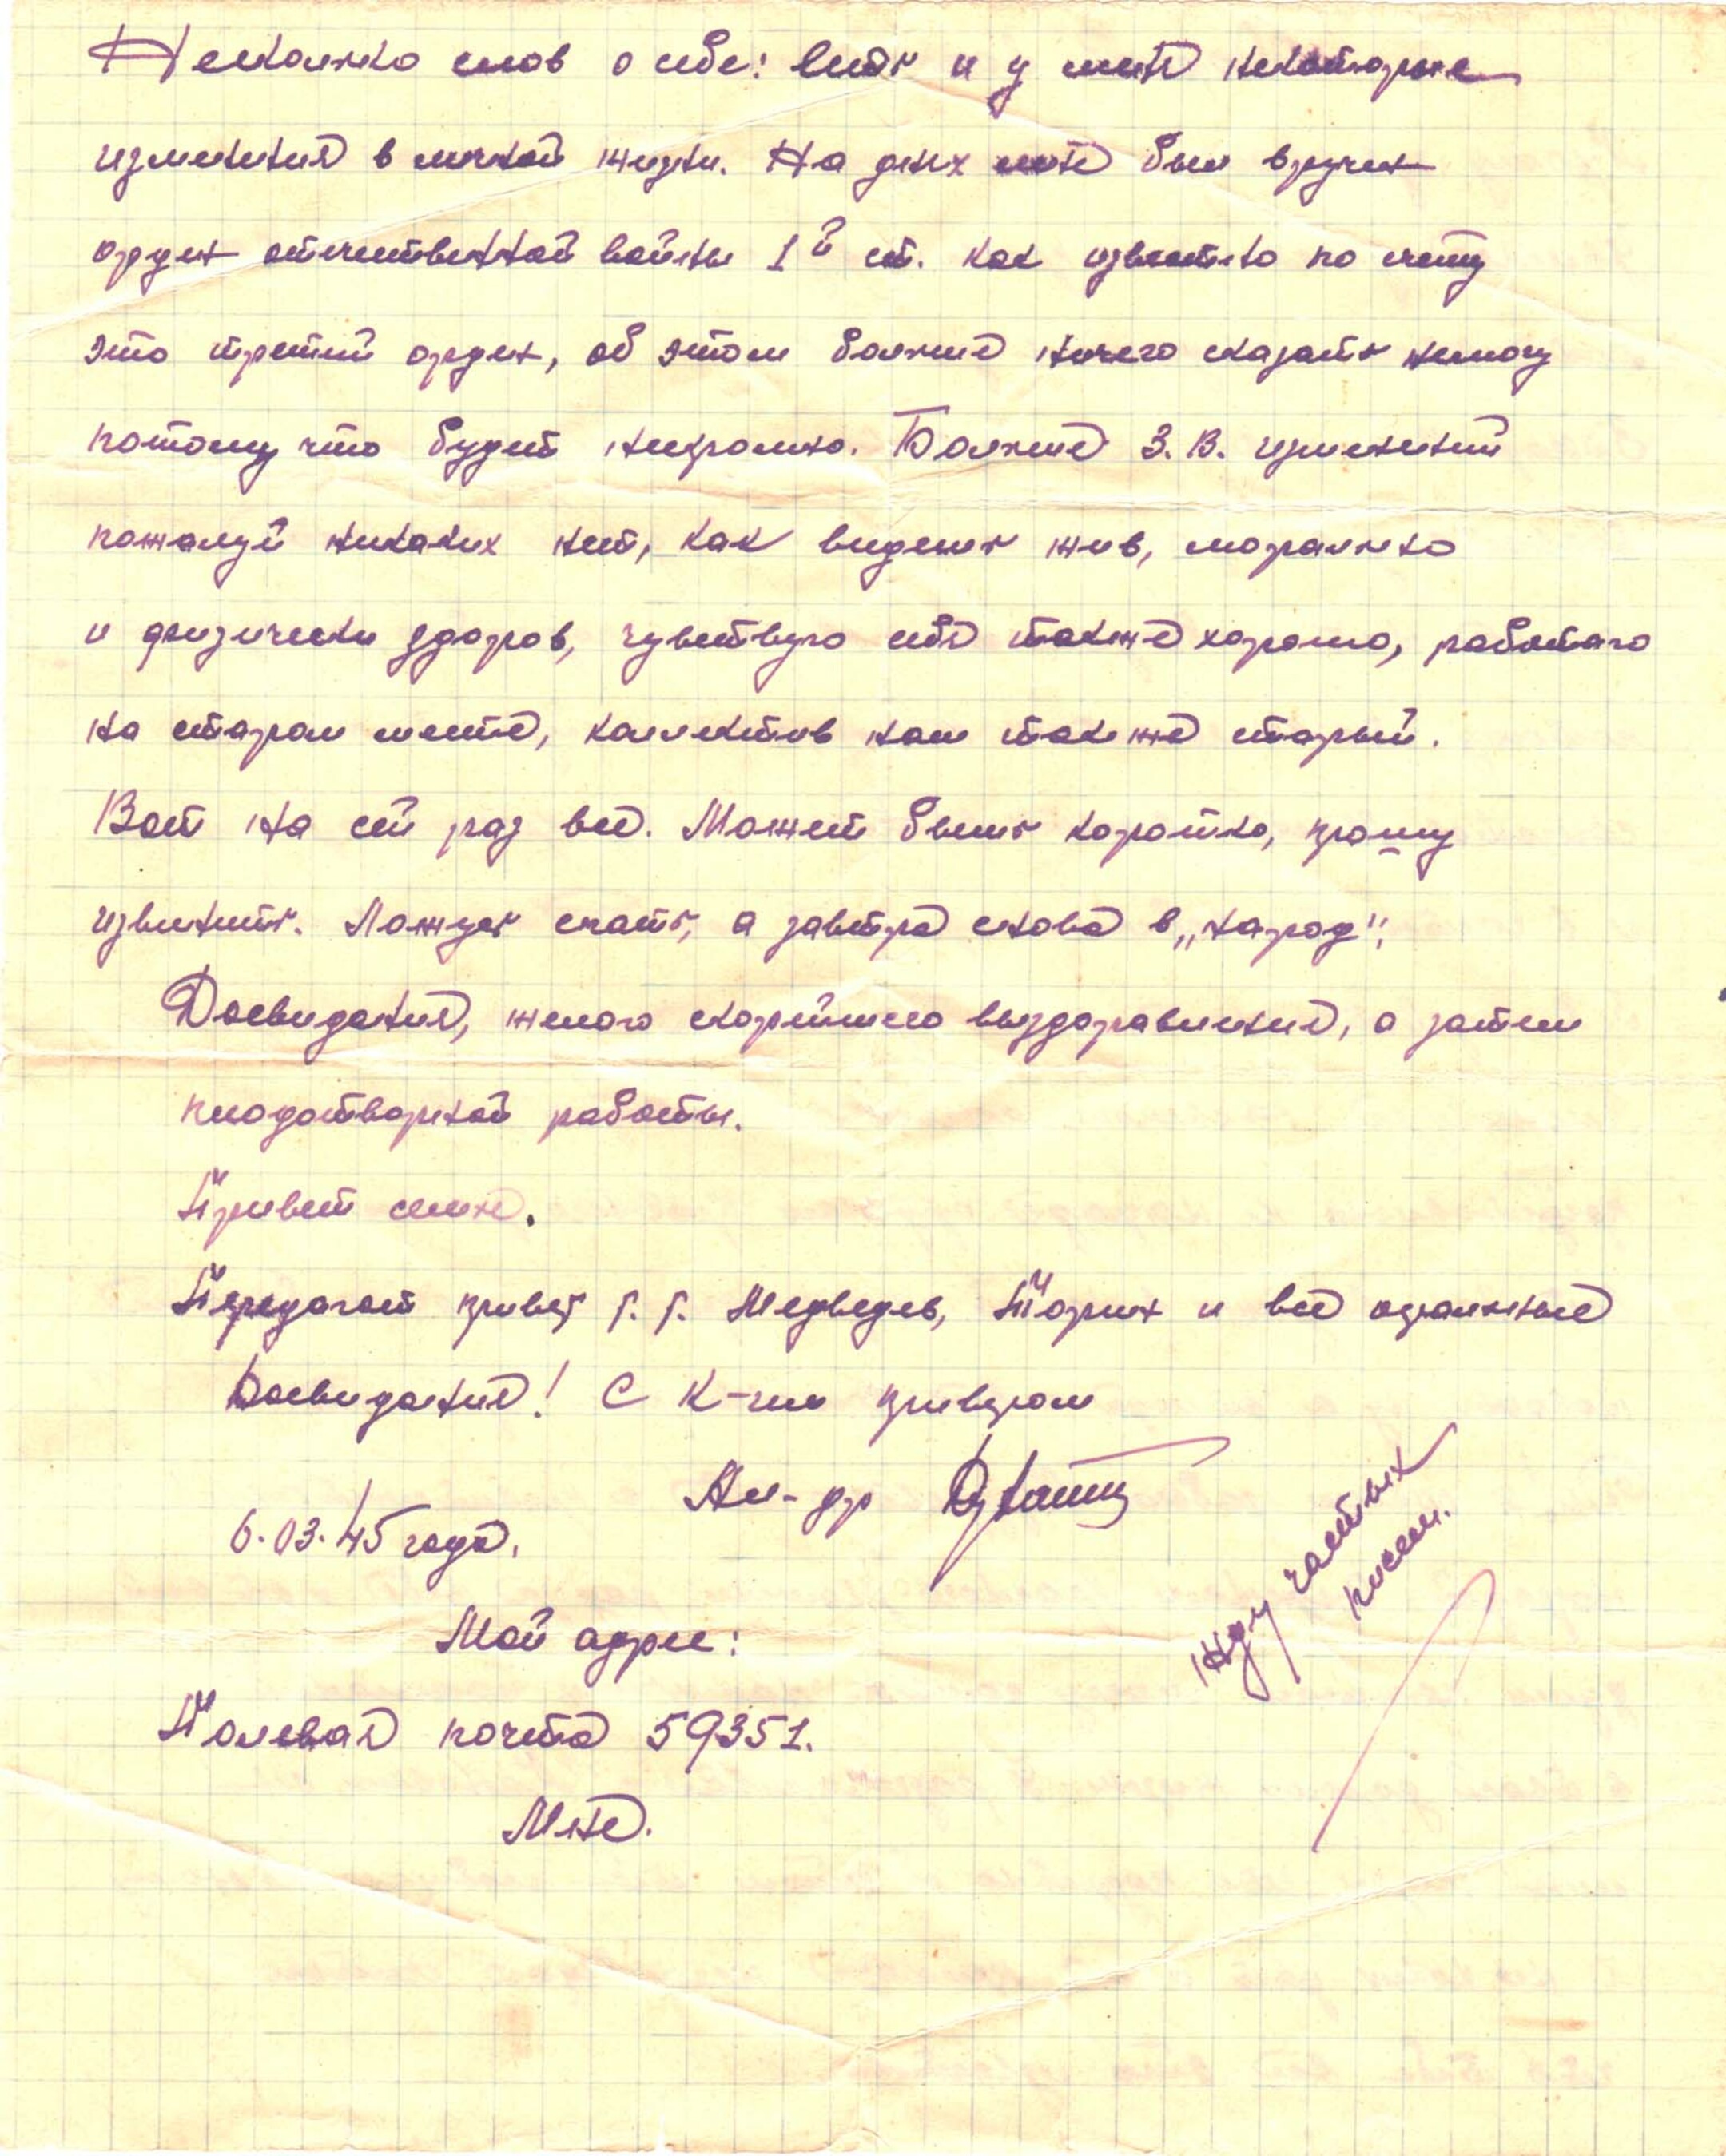 Несколько слов о себе: ведь и у меня некоторые
изменения в личной жизни. На днях мне был вручен
орден отечественной войны 1й ст. как известно по счету
это третий орден, об этом больше ничего сказать немогу
потому что будет нескромно. Больше З.В. изменений
пожалуй никаких нет, как видишь жив, морально
и физически здоров, чувствую себя также хорошо, работаю
на старом месте, коллектив наш также старый.
Вот на сей раз все. Может быть коротко, прошу
извинить. Ложусь спать, а завтра снова в „народ“.
Досвидания, желаю скорейшего выздоравления, а затем
плодотворной работы.
Привет семье.
Передают привет г.г. Медведев, Торин и все остальные
Досвидания! С К-чим приветом
Ал-др
6.03.45 года.
Жду частых
писем.
Мой адрес:
Полевая почта 59351.
Мне.